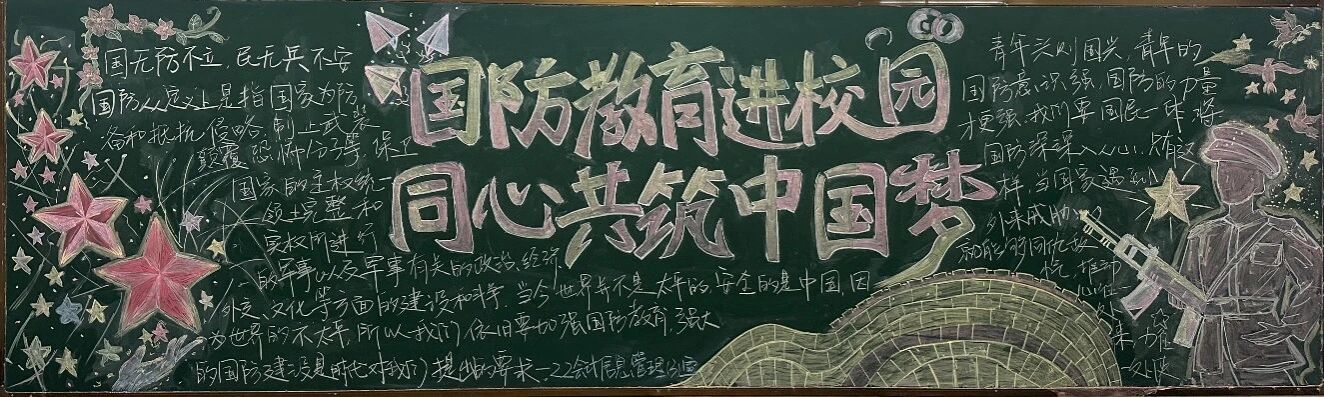 国防教育进校园
同心共筑中国梦
国无防不立，民无兵不安
国防从定义上是指国家为防
备和抵抗侵略，制止武装
颠覆恐怖分子等，保卫
国家的主权统一
领土完整和
安权所进行
的军事以及军事有关的政治、经济
外交、文化等方面的建设和斗争，当今世界并不是太平的，安全的是中国，因
为世界的不太平，所以我们依旧要加强国防教育，强大
的国防建设是时代对我们提出的要求
青年兴则国兴，青年的
国防意识强，国防的力量
才更强，我们要国民一体，将
国防深深入人心，只有这
样，当国家遇到
外来威胁
就能够同仇敌
忾，
心往一
处
力往
一处使